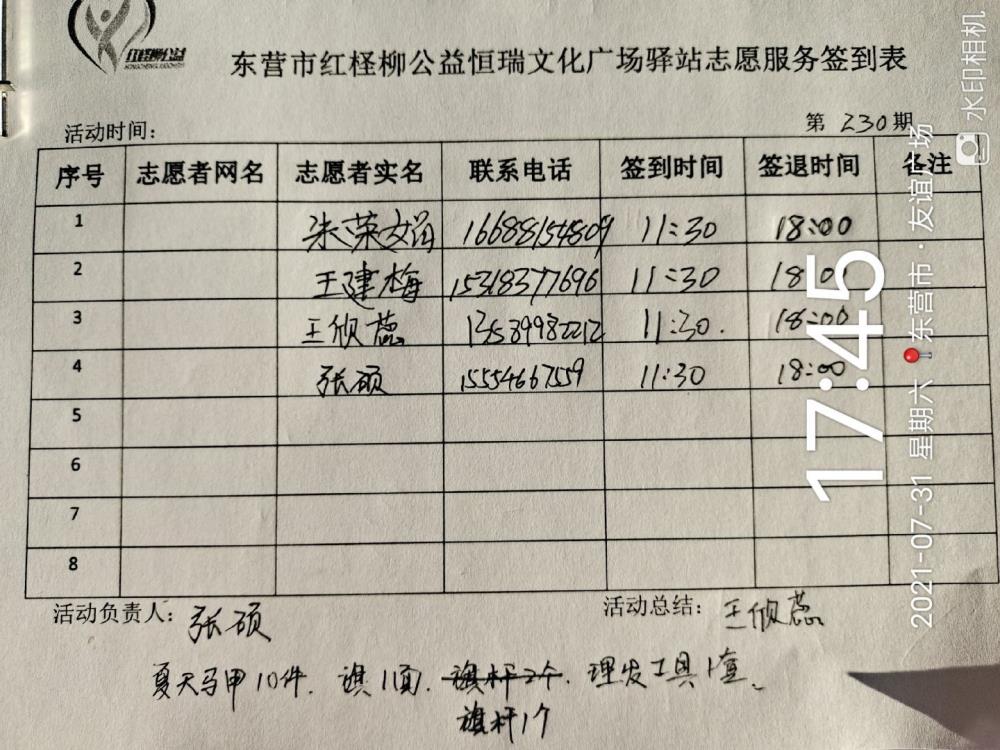 红柽柳公益
东营市红柽柳公益恒瑞文化广场驿站志愿服务签到表
活动时间：
第 230 期
序号 志愿者网名 志愿者实名 联系电话 签到时间 签退时间 备注
1 朱荣娟 16688154809 11:30 18:00
2 王建梅 15318377696 11:30 18:00
3 王欣蕊 13539982212 11:30. 18:00
4 张硕 15554667559 11:30 18:00
5
6
7
8
活动负责人：张硕
活动总结：王欣蕊
夏天马甲10件. 旗1面. 旗杆2个. 理发工具1套、
旗杆1个
水印相机
17:45
2021-07-31 星期六 东营市·友谊广场